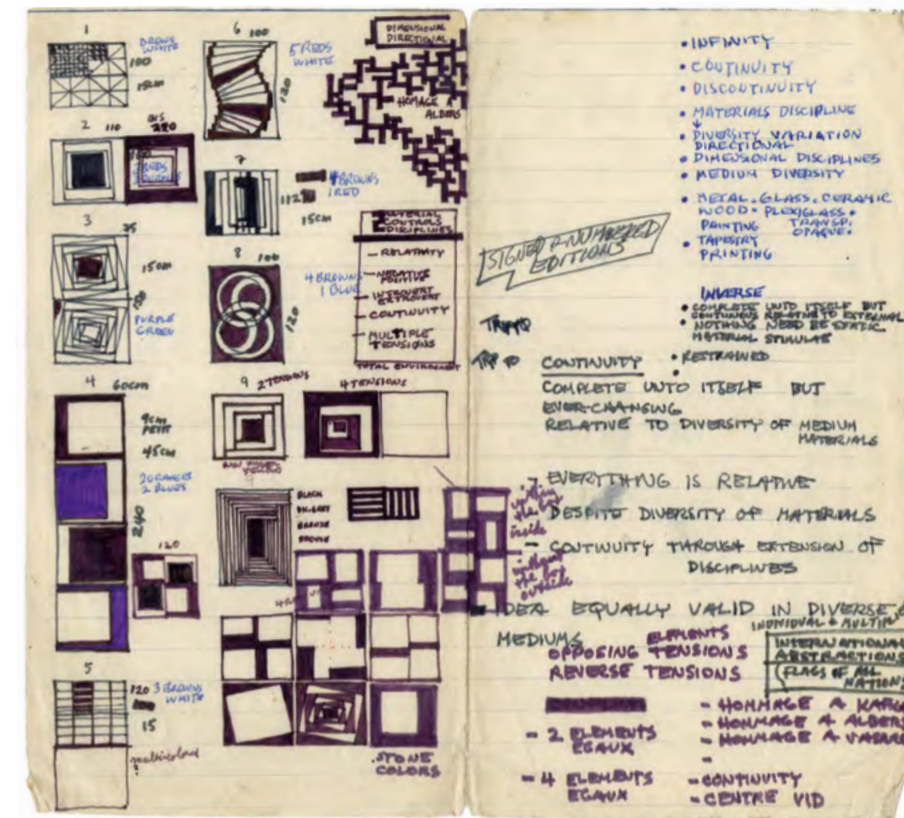 1
BROWN
WHITE
100
15cm
2
110
BIS
220
3
25
15cm
PURPLE
GREEN
4
60cm
PETIT
45cm
2 ORANGES
2 BLUES
240
120
5
120
3 BROWNS
WHITE
100
15
multicolored
?
6
100
5 REDS
WHITE
120
7
4 BROWNS
1 RED
112
15cm
8
100
4 BROWNS
1 BLUE
120
9
2 TENSIONS
4 TENSIONS
YELLOW
BLACK
DK. GREY
ORANGE
STONE
COLORS
DIMENSIONAL
DIRECTIONAL
HOMAGE A
ALBERS
MATERIAL
CONTROLS
DISCIPLINES
- RELATIVITY
- NEGATIVE
POSITIVE
- INTROVERT
EXTROVERT
- CONTINUITY
- MULTIPLE
TENSIONS
TOTAL ENVIRONMENT
• INFINITY
• CONTINUITY
• DISCONTINUITY
• MATERIALS DISCIPLINE
• DIVERSITY VARIATION
DIRECTIONAL
• DIMENSIONAL DISCIPLINES
• MEDIUM DIVERSITY
• METAL. GLASS. CERAMIC
WOOD. PLEXIGLASS.
PAINTING TRANSP.
OPAQUE.
• TAPESTRY
PRINTING
SIGNED & NUMBERED
EDITIONS
INVERSE
• COMPLETE UNTO ITSELF BUT
CONTINUOUS RELATIVE TO EXTERNAL
• NOTHING NEED BE STATIC
MATERIAL STIMULAE
CONTINUITY • RESTRAINED
COMPLETE UNTO ITSELF BUT
EVER-CHANGING
RELATIVE TO DIVERSITY OF MEDIUM
MATERIALS
within
the box
inside
without
the box
outside
- EVERYTHING IS RELATIVE
DESPITE DIVERSITY OF MATERIALS
- CONTINUITY THROUGH EXTENSION OF
DISCIPLINES
- IDEA EQUALLY VALID IN DIVERSE
MEDIUMS
INDIVIDUAL & MULTIPLE
ELEMENTS
OPPOSING TENSIONS
REVERSE TENSIONS
INTERNATIONAL
ABSTRACTIONS
FLAGS OF ALL
NATIONS
- 2 ELEMENTS
EGAUX
- 4 ELEMENTS
EGAUX
- HOMMAGE A
- HOMMAGE A ALBERS
- HOMMAGE A VASARE
-
- CONTINUITY
- CENTRE VID